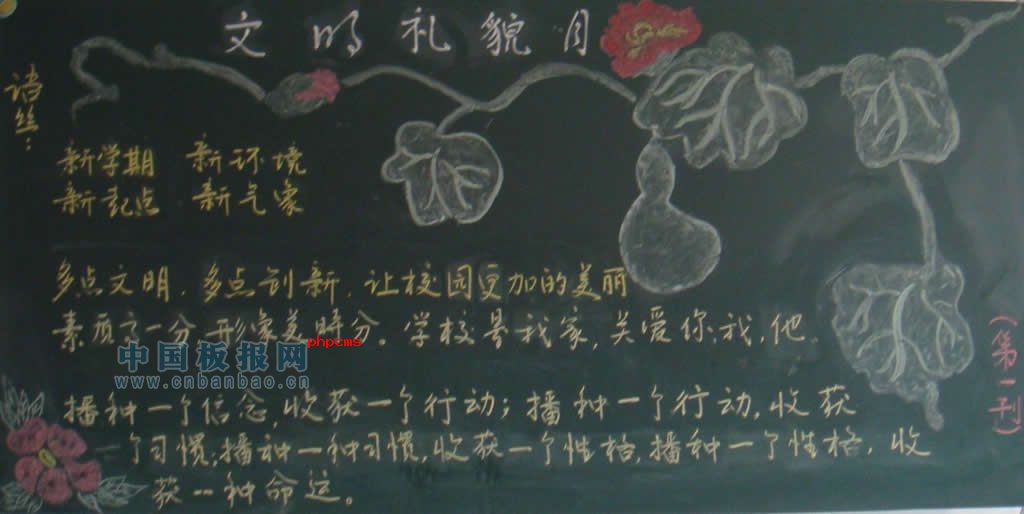 文明礼貌月
诗丝：
新学期 新环境
新起点 新气象
多点文明，多点创新，让校园更加的美丽
素质高一分形像美時分。学校是我家，关爱你，我，他。
phpcms
中国板报网
www.cnbanbao.cn
播种一个信念，收获一个行动；播种一个行动，收获
一个习惯；播种一种习惯，收获一个性格，播种一个性格，收
获一种命运。
（第一刊）